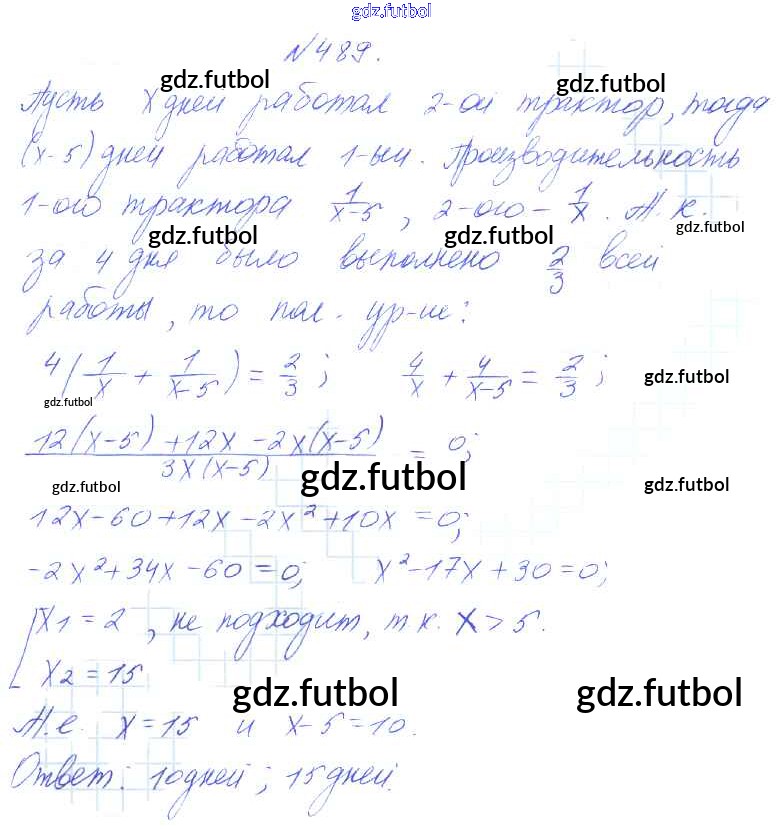 gdz.futbol
№489.
gdz.futbol gdz.futbol
Пусть x дней работал 2-ой трактор, тогда
(x-5) дней работал 1-ый. Производительность
1-ого трактора 1/(x-5), 2-ого – 1/x. Т.к.
gdz.futbol gdz.futbol gdz.futbol
за 4 дня было выполнено 2/3 всей
работы, то пол. ур-ие:
4(1/x + 1/(x-5)) = 2/3; 4/x + 4/(x-5) = 2/3;
gdz.futbol gdz.futbol
(12(x-5)+12x-2x(x-5))/(3x(x-5)) = 0;
gdz.futbol gdz.futbol gdz.futbol
12x-60+12x-2x²+10x=0;
-2x²+34x-60=0; x²-17x+30=0;
[x1=2, не подходит, т.к. x>5.
x2=15
gdz.futbol gdz.futbol
Т.е. x=15 и x-5=10.
Ответ: 10 дней; 15 дней.